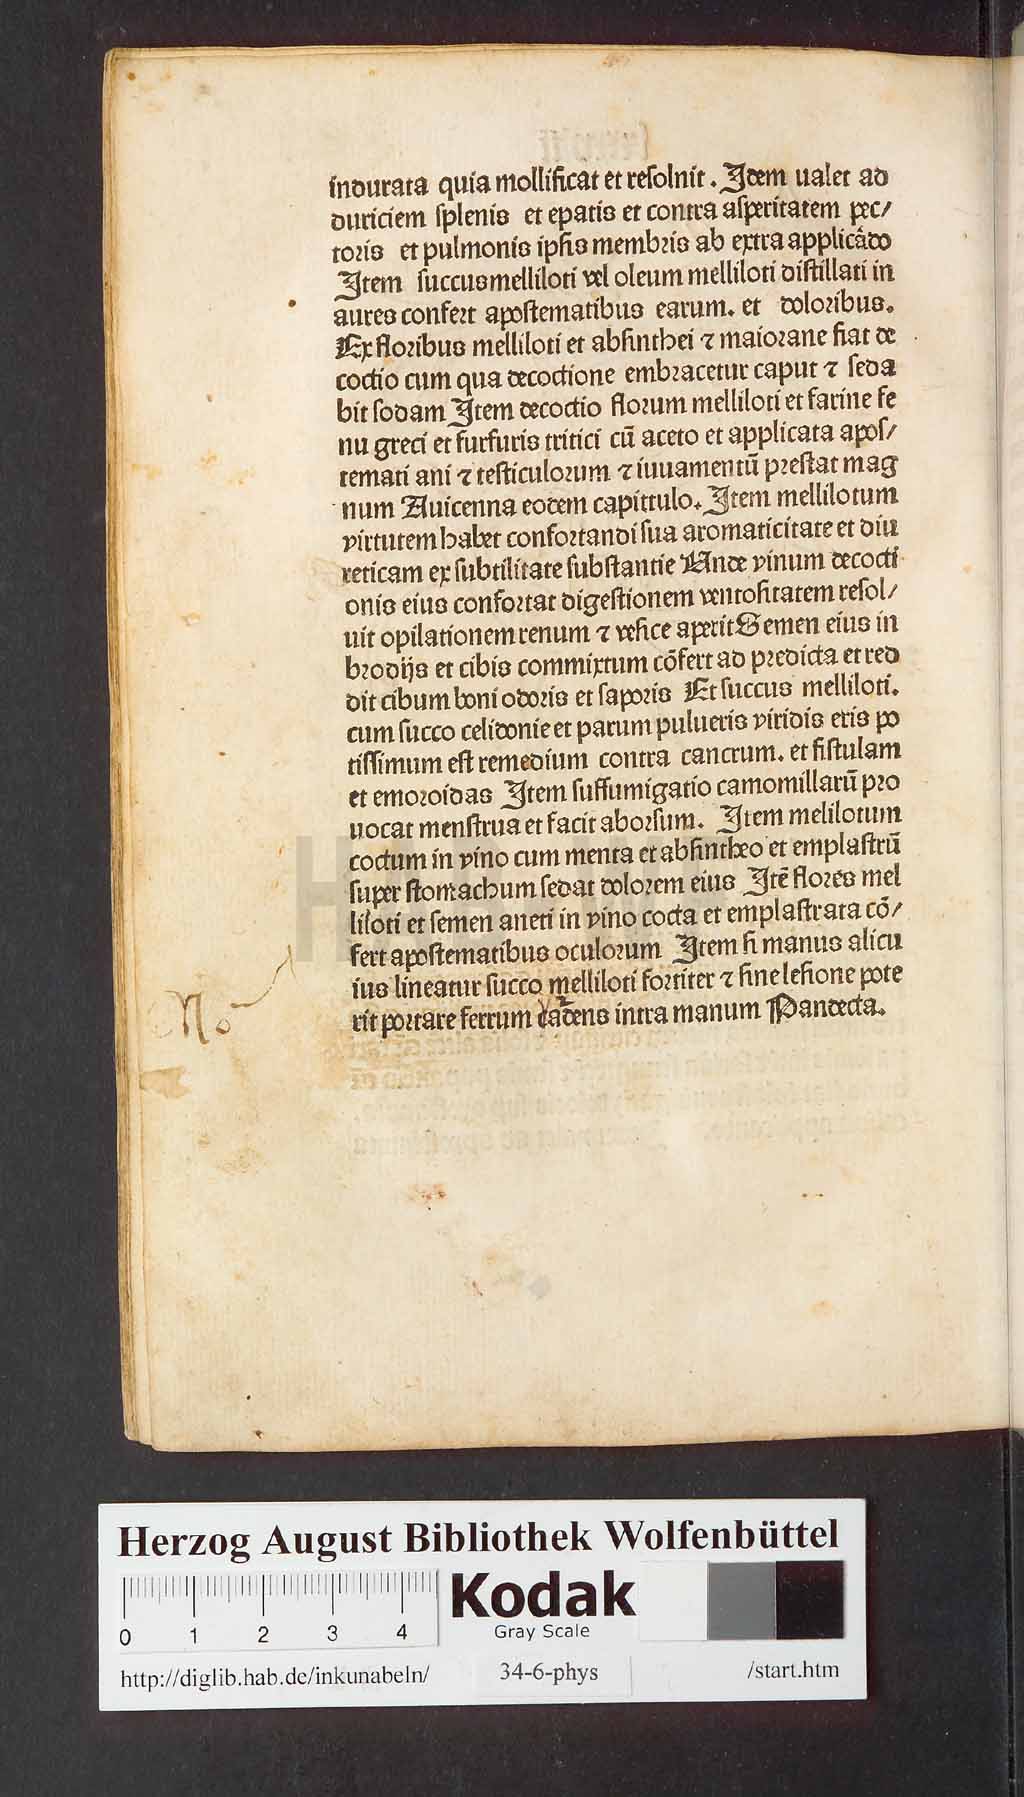 indurata quia mollificat et reſolnit. Item ualet ad
duriciem ſplenis et epatis et contra aſperitatem pec/
toris et pulmonis ipſis membris ab extra applicādo
Item ſuccus melliloti vel oleum melliloti diſtillati in
aures confert apoſtematibus earum. et doloribus.
Ex floribus melliloti et abſinthei ⁊ maiorane fiat de
coctio cum qua decoctione embracetur caput ⁊ ſeda
bit ſodam Item decoctio florum melliloti et farine fe
nu greci et furfuris tritici cū aceto et applicata apoſ/
temati ani ⁊ teſticulorum ⁊ iuuamentū preſtat mag
num Auicenna eodem capittulo. Item mellilotum
virtutem habet confortandi ſua aromaticitate et diu
reticam ex ſubtilitate ſubſtantie Unde vinum decocti
onis eius confortat digeſtionem ventoſitatem reſol/
uit opilationem renum ⁊ veſice aperit Semen eius in
brodijs et cibis commixtum cōfert ad predicta et red
dit cibum boni odoris et ſaporis Et ſuccus melliloti.
cum ſucco celidonie et parum pulueris viridis eris po
tiſſimum eſt remedium contra cancrum. et fiſtulam
et emoroidas Item ſuffumigatio camomillarū pro
uocat menſtrua et facit aborſum. Item melilotum
coctum in vino cum menta et abſintheo et emplaſtrū
ſuper ſtomachum ſedat dolorem eius Itē flores mel
liloti et ſemen aneti in vino cocta et emplaſtrata cō/
fert apoſtematibus oculorum Item ſi manus alicu
ius lineatur ſucco melliloti fortiter ⁊ ſine leſione pote
rit portare ferrum cadens intra manum Pandecta.
No
HAB
Herzog August Bibliothek Wolfenbüttel
0 1 2 3 4
Kodak
Gray Scale
http://diglib.hab.de/inkunabeln/ 34-6-phys /start.htm